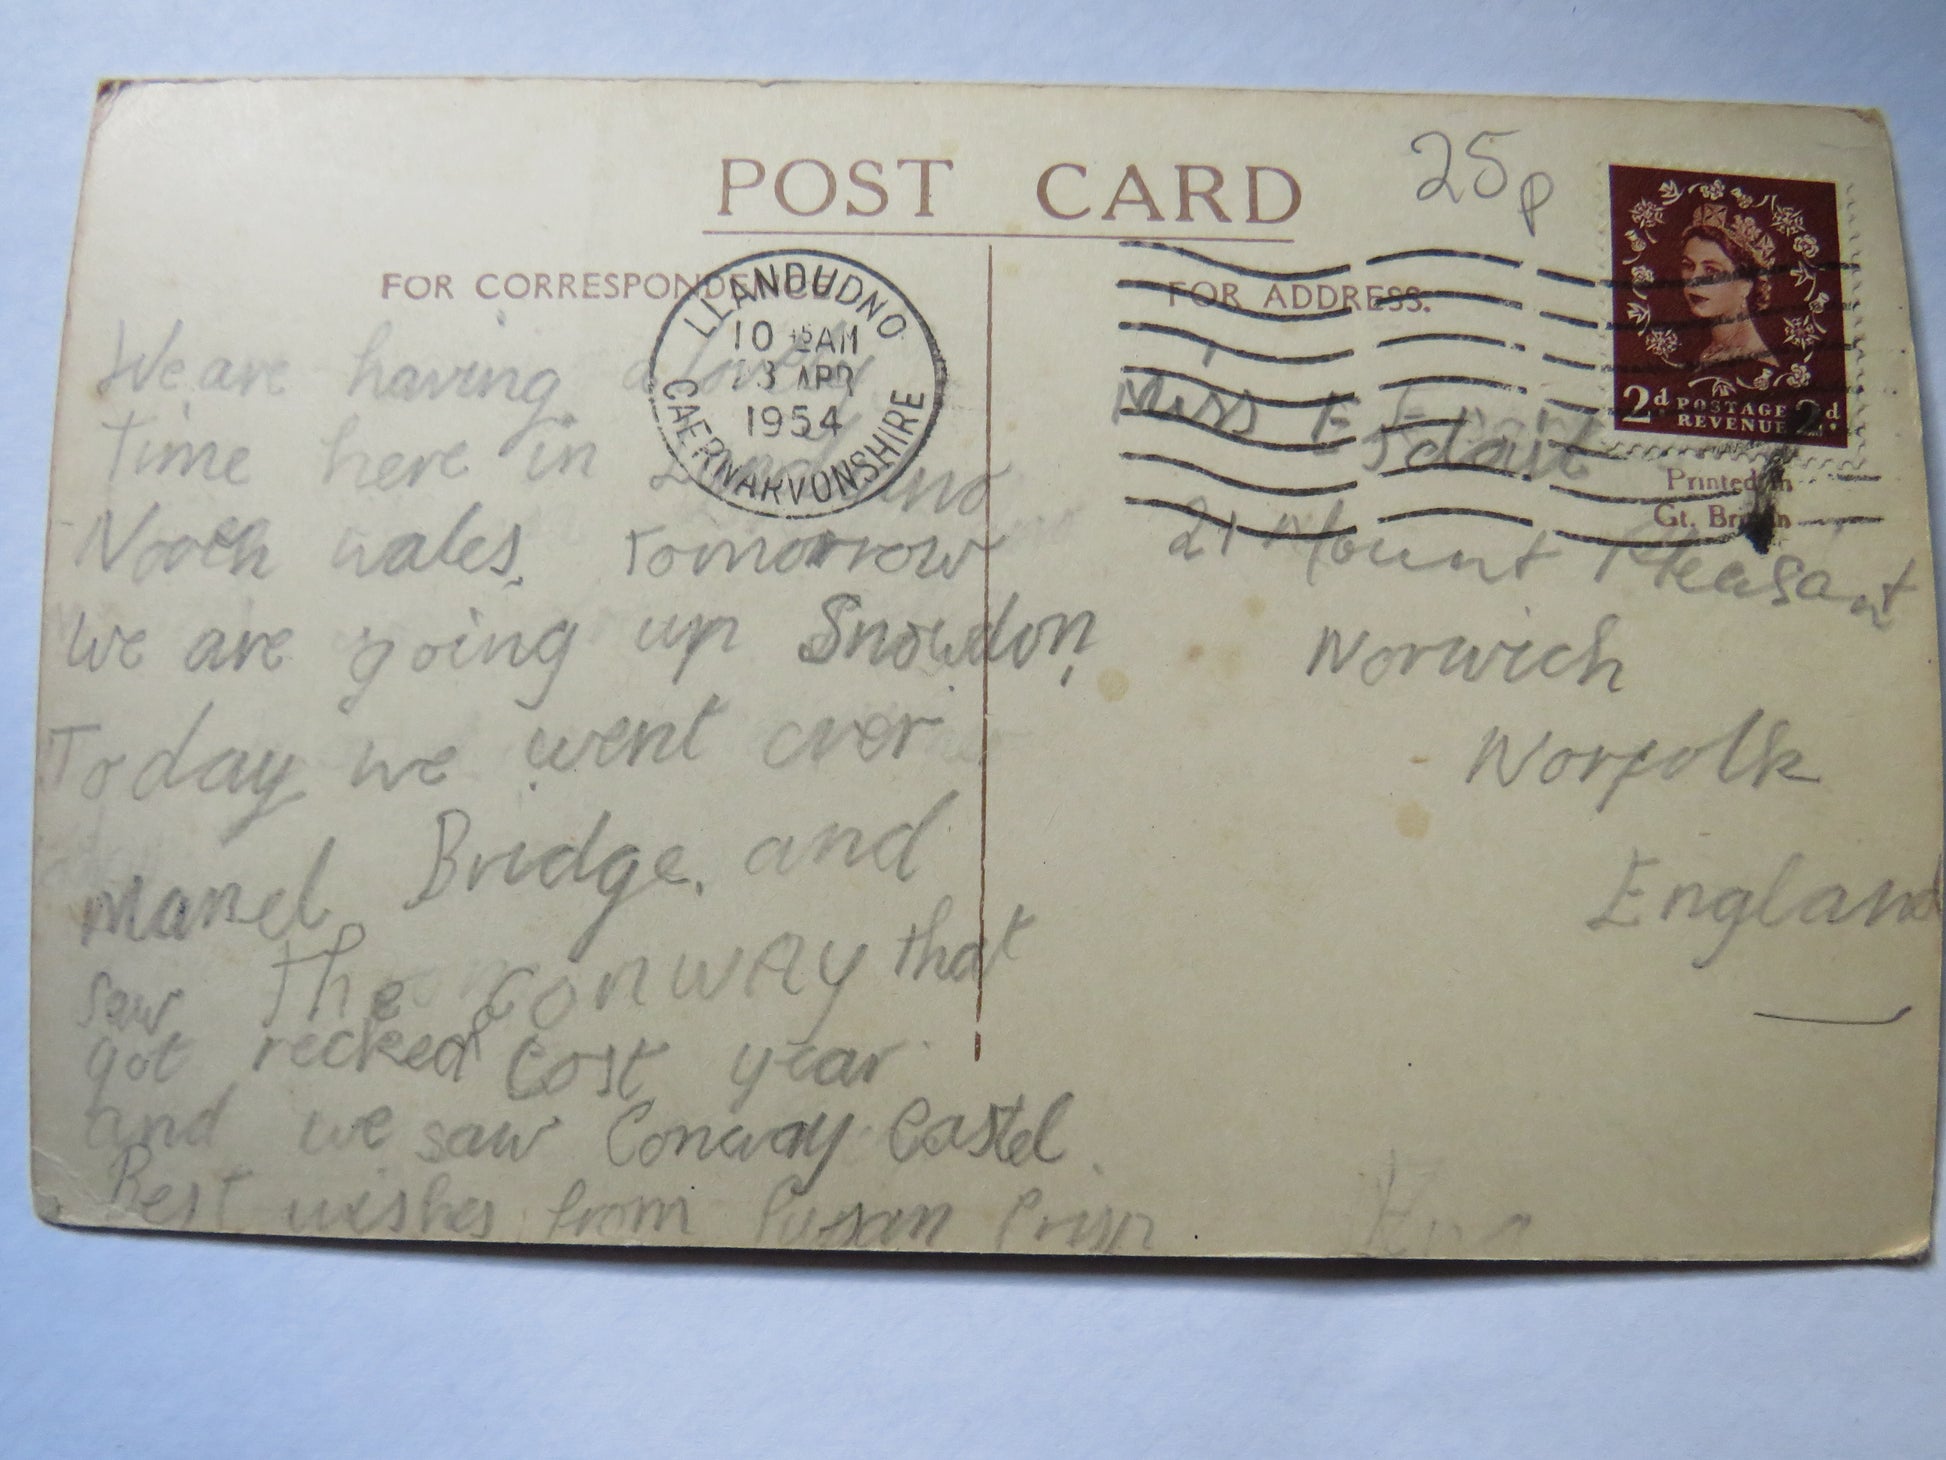 POST CARD
25p
FOR CORRESPONDENCE
FOR ADDRESS.
LLANDUDNO
10 15 AM
APR
1954
CAERNARVONSHIRE
2d POSTAGE REVENUE 2d.
Printed in
Gt. Britain
We are having a lovely
Time here in
North wales. Tomorrow
We are going up Snowdon,
Today we went over
Manel Bridge. and
saw The conwAy that
got recked Cost year
and we saw Conway Castel.
Best wishes from Susan Crisp
Miss E
21 Mount Pleasant
Norwich
Norfolk
England